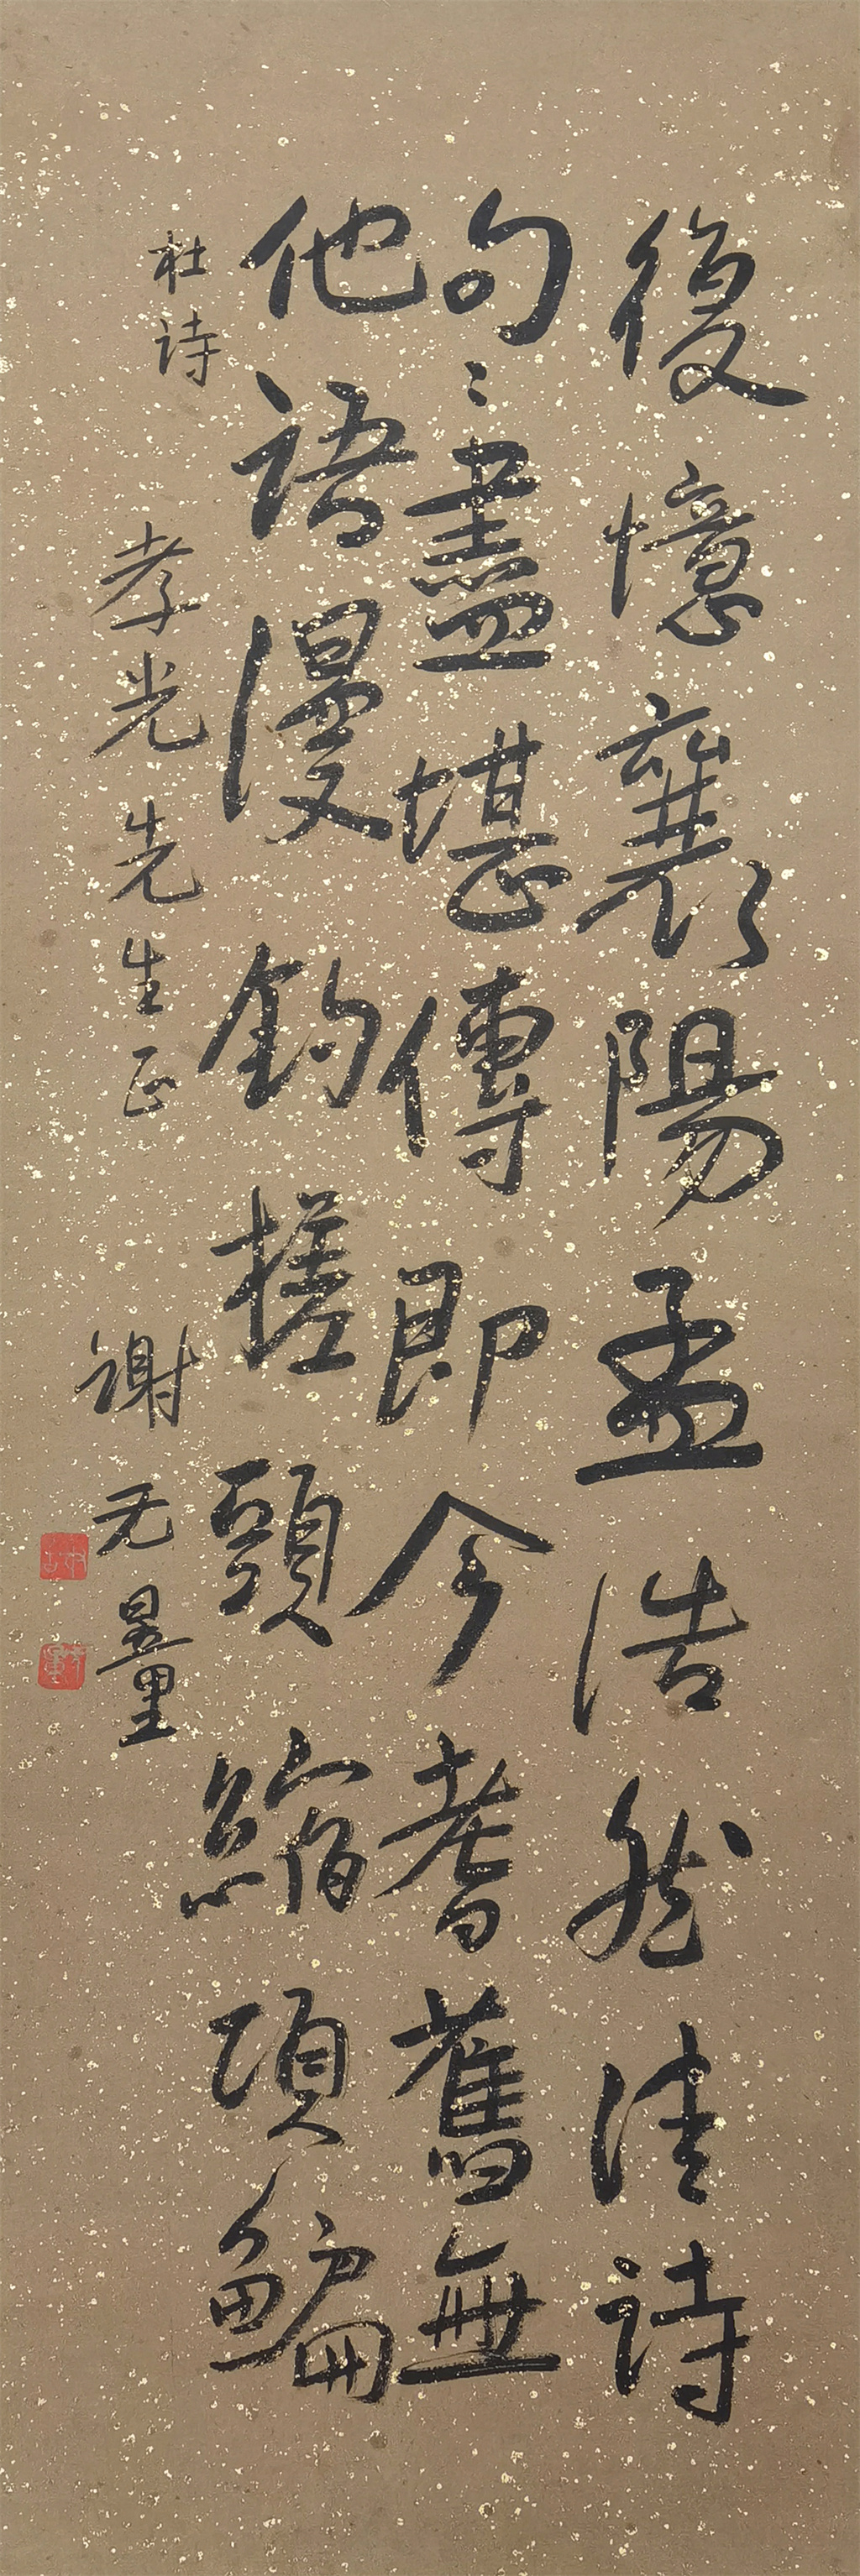 復憶襄陽孟浩然清詩
句〻盡堪傳即今耆舊無
他語漫釣槎頭縮項鯿
杜诗
孝光先生正
謝无量